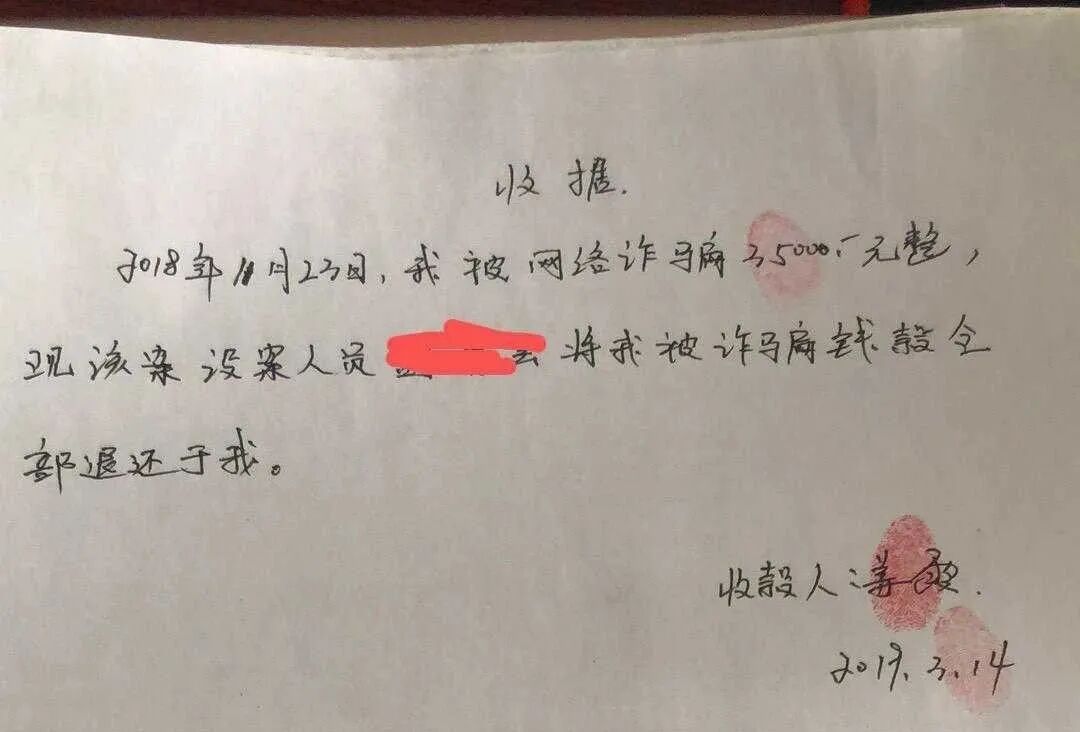 收据.
2018年11月23日,我被网络诈骗35000.-元整,
现该案涉案人员 将我被诈骗钱款全
部退还于我。
收款人:姜
2019.3.14